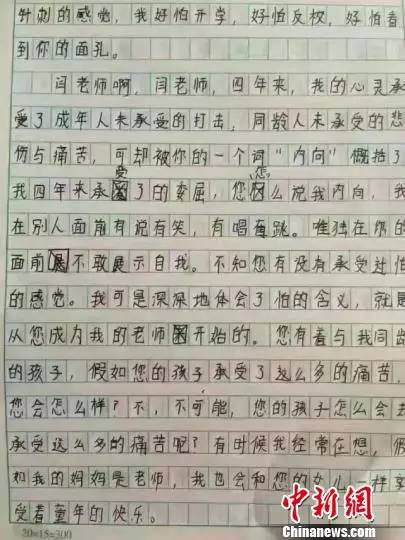 针刺的感觉,我好怕开学,好怕反校,好怕看
到你的面孔。
闫老师啊,闫老师,四年来,我的心灵承
受了成年人未承受的打击,同龄人未承受的悲
伤与痛苦,可却被你的一个词“内向”慨括了
受 怎
我四年来承了的委屈,您么说我内向,我
在别人面前有说有笑,有唱有跳。唯独在你的
面前不敢展示自我。不知您有没有承受过怕
的感觉。我可是深深地体会了怕的含义,就是
从您成为我的老师开始的。您有着与我同龄
的孩子,假如您的孩子承受了这么多的痛苦,
您会怎么样?不,不可能,您的孩子怎么会去
承受这么多的痛苦呢?有时候我经常在想,假
如我的妈妈是老师,我也会和您的女儿一样享
受着童年的快乐。
20×15=300
中新网
Chinanews.com